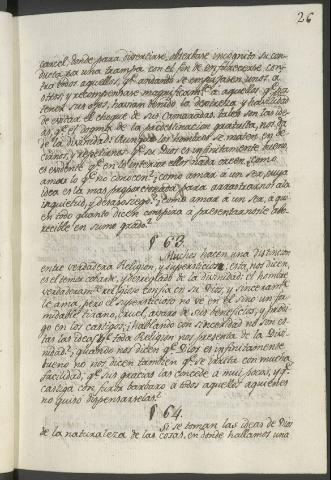 26
carcel, donde para divertirse, observase incognito su con-
ducta por una trampa con el fin de enfurecerse con-
tra todos aquellos, qe. andando se empujasen unos, a
otros, y recompensase magnificamte. a aquellos qe. sin
tener sus ojos, havian tenido la destreza y habilidad
de evitar el choque de sus Camaradas, tales son las ide-
as, qe. el dogma de la predestinacion gratuita, nos dá
de la divinidad. Aunque los hombres se maten en de-
cirnos, y repetirnos qe. su Dios es infinitamente bueno,
es evidente qe. en lo interior ellos nada creen. Como
amar lo qe. no conocen? ¿como amar a un ser, cuya
idea es la mas proporcionada para arrastrarnos a la
inquietud, y desasosiego? ¿como amar a un ser, a qui-
en todo quanto dicen conspira a presentarnosle abo-
recible en sumo grado?
§ 63.
Muchos hacen una distincion
entre verdadera Religion, y supersticion, esta, nos dicen,
es el temor cobarde, y desreglado de la divinidad: el hombre
verdaderamte. religioso confia en su Dios, y sinceramte.
le ama, pero el supersticioso no ve en él sino un for-
midable tirano, cruel, avaro de sus beneficios, y prodi-
go en los castigos: ¿hablando con sinceridad no son es-
tas las ideas qe. toda Religion nos presenta de la Divi-
nidad? ¿quando nos dicen qe. Dios es infinitamente
bueno no nos dicen tambien qe. se irrita con mucha
facilidad, qe. sus gracias las concede a mui pocos, y qe.
castiga con furor barbaro a todos aquellos a quienes
no quiso dispensarselas?
§ 64.
Si se toman las ideas de Dios
de la naturaleza de las cosas, en donde hallamos una